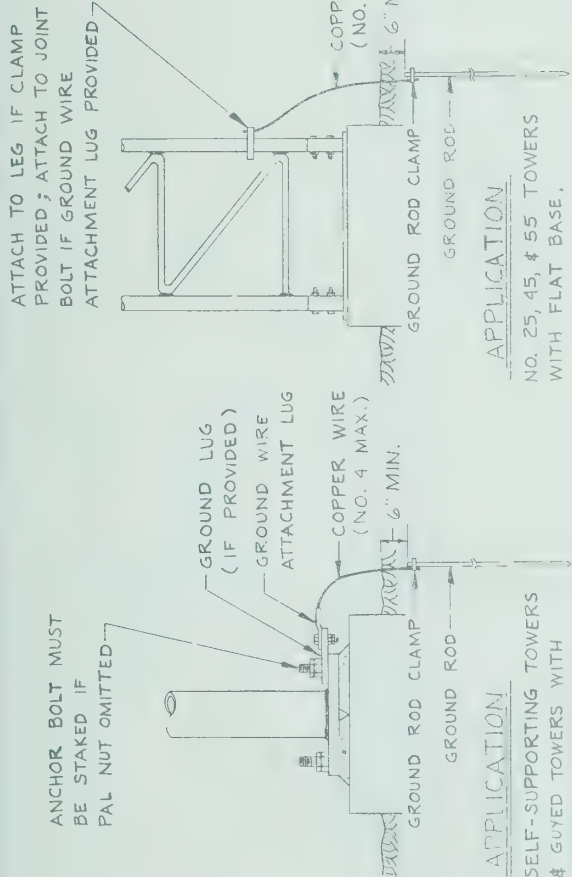 ANCHOR BOLT MUST
BE STAKED IF
PAL NUT OMITTED
GROUND LUG
(IF PROVIDED)
GROUND WIRE
ATTACHMENT LUG
COPPER WIRE
(NO. 4 MAX.)
6" MIN.
GROUND ROD CLAMP
GROUND ROD
APPLICATION
SELF-SUPPORTING TOWERS
& GUYED TOWERS WITH
ATTACH TO LEG IF CLAMP
PROVIDED; ATTACH TO JOINT
BOLT IF GROUND WIRE
ATTACHMENT LUG PROVIDED
COPP
(NO.
6" M
GROUND ROD CLAMP
GROUND ROD
APPLICATION
NO. 25, 45, & 55 TOWERS
WITH FLAT BASE.